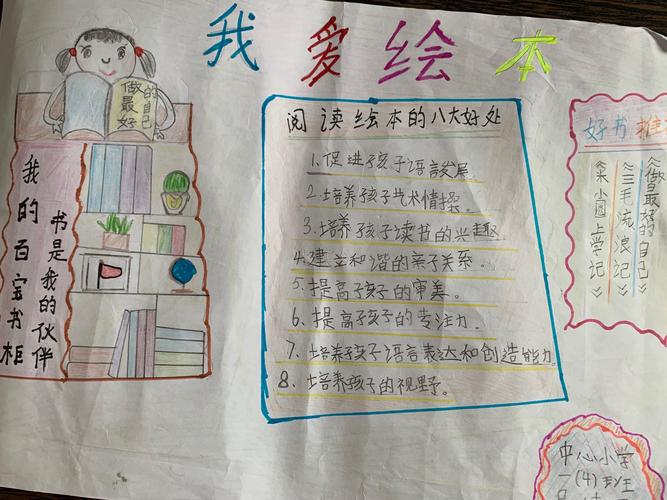 我爱绘本
做最好
的自己
我的百宝书柜
书是我的伙伴
阅读绘本的八大好处
1.促进孩子语言发展.
2.培养孩子艺术情操.
3.培养孩子读书的兴趣
4.建立和谐的亲子关系.
5.提高孩子的审美.
6、提高孩子的专注力.
7、培养孩子语言表达和创造能力.
8、培养孩子的视野。
好书推
《做最好的自己》
《三毛流浪记》
《米小圈上学记》
中心小学
一(4)班